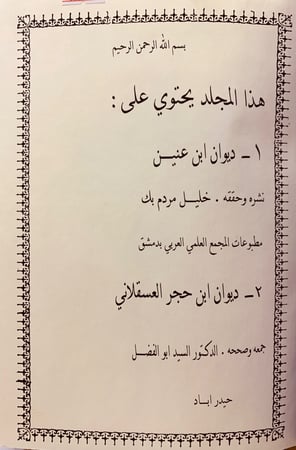 بسم الله الرحمن الرحيم
هذا المجلد يحتوي على :
١ - ديوان ابن عنين
نشره وحققه . خليل مردم بك
مطبوعات المجمع العلمي العربي بدمشق
٢ - ديوان ابن حجر العسقلاني
جمعه وصححه . الدكتور السيد ابو الفضل
حيدر اباد